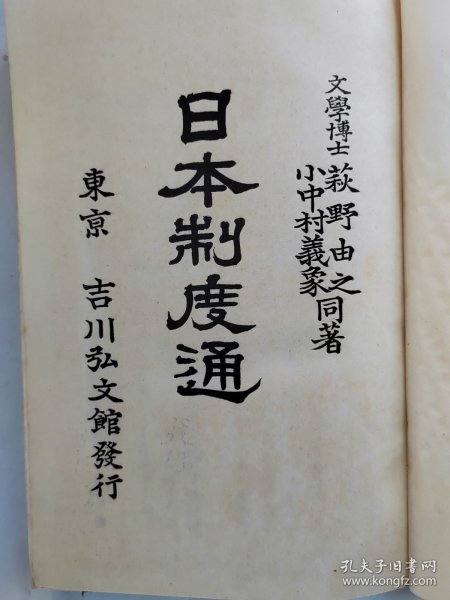 文學博士 萩野由之
小中村義象 同著
日本制度通
東亰 吉川弘文館發行
孔夫子旧书网
www.kongfz.com